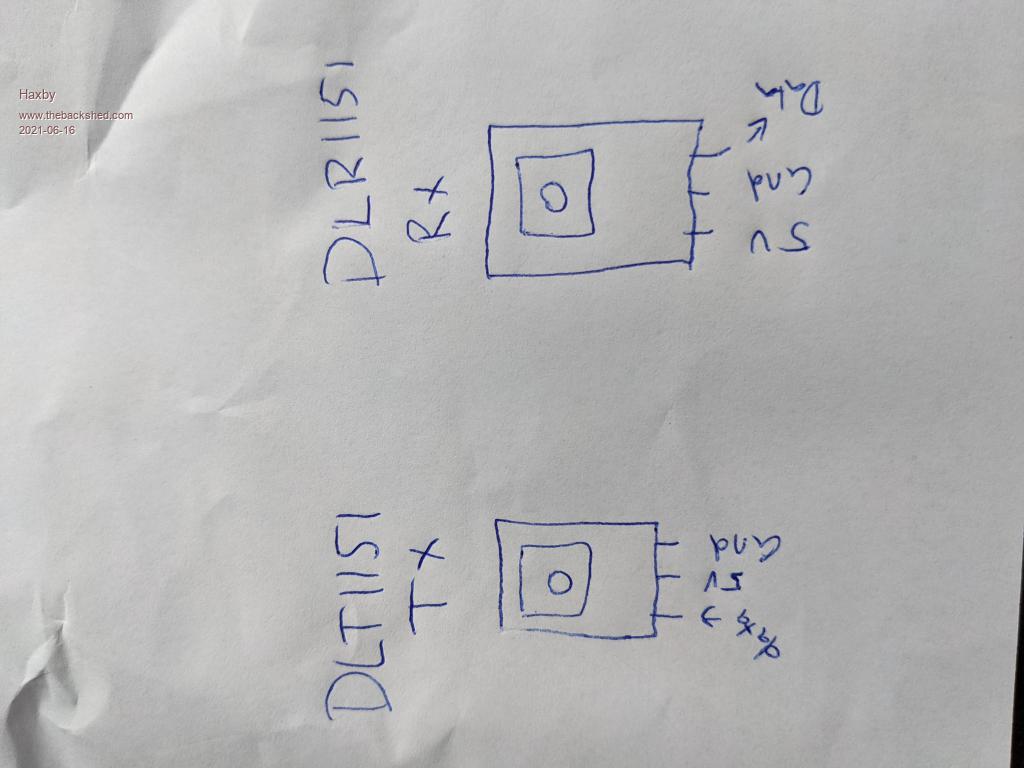 Haxby
www.thebackshed.com
2021-06-16
DLT1151
TX
Gnd
5V
DLR1151
RX
Data
Gnd
5V